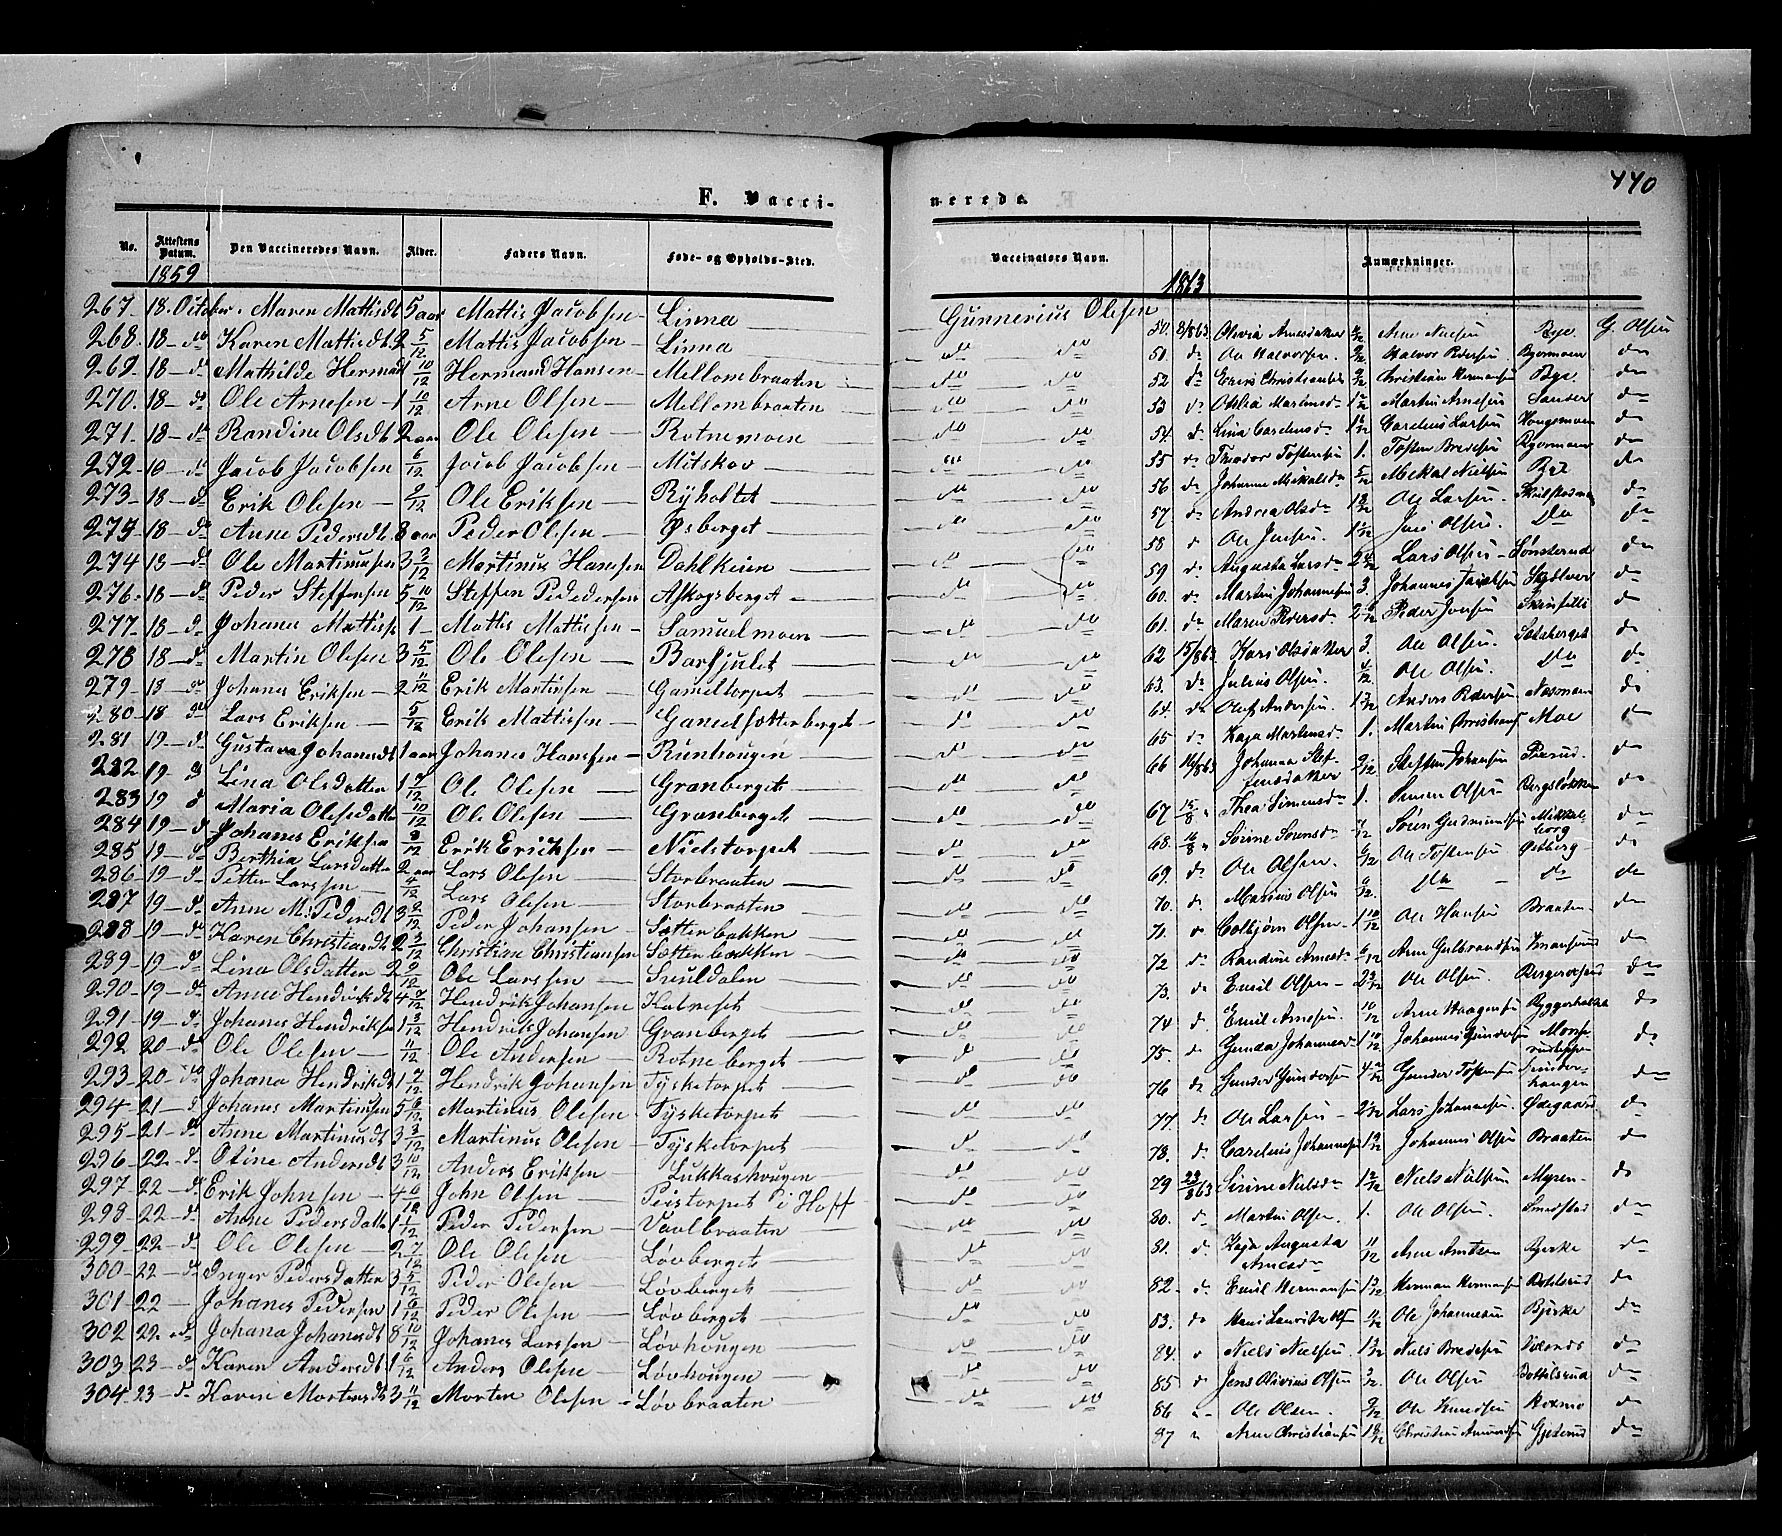 440
F. Vacci-
nerede.
No. Attestens Datum. Den Vaccineredes Navn. Alder. Faders Navn. Føde- og Opholds-Sted.
Vaccinators Navn. Anmærkninger.
1859
1863
267. 18. October. Maren Mattisdt 5 aar Mattis Jacobsen - Linna Gunnerius Olesen
268. 18 - do Karen Mattisdt 2 5/12 Mattis Jacobsen - Linna do do
269. 18 - do Mathilde Hermd 1 10/12 Hermand Hansen - Mellombraaten do do
270. 18 - do Ole Arnesen - 1 10/12 Arne Olsen - Mellombraaten do do
271. 18 - do Randine Olsdt 2 aar Ole Olesen - Rotnemoen do do
272 - 18 - do Jacob Jacobsen 6/12 Jacob Jacobsen - Mitskov do do
273 - 18 - do Erik Olesen - 9/12 Ole Eriksen - Ryholtet do do
274 - 18 - do Anne Pedersdt 8 aar Peder Olsen - Øsberget do do
274 - 18 - do Ole Martinusen 3 3/12 Martinus Hansen Dahlkeien do do
276 - 18 - do Peder Steffensen 5 10/12 Steffen Pedersen Askogsberget do do
277 - 18 - do Johanes Mattiss 1 - Mattis Mattissen - Samuelmoen do do
278 18 - do Martin Olesen 3 5/12 Ole Olesen - Barfjulet do do
279 - 18 - do Johanes Eriksen - 2 11/12 Erik Martinsen Gameltorpet do do
280 - 18 do Lars Eriksen - 5/12 Erik Mattissen - Gamelsætterberget do do
281 19 - do Gustava Johanesdt 1 aar Johanes Hansen - Runhougen do do
282 19 - do Lina Olsdatter 1 7/12 Ole Olesen - Grønberget do do
283 19 do Maria Olesdatter 10/12 Ole Olesen - Grønberget do do
284 19 - do Johanes Eriksen 8/12 Erik Eriksen - Nielstorpet do do
285 19 - do Berthia Larsdatter 2 aar Lars Olesen - Storbraaten do do
286 - 19 - do Petter Larssen - 4/12 Lars Olesen - Storbraaten do do
287 19 - do Anne M. Pedersdt 3 8/12 Peder Johansen - Sætterbakken do do
288 - 19 - do Karen Christiansdt 2 3/12 Christian Christiansen Sætterbakken do do
289 - 19 - do Lina Olsdatter 2 9/12 Ole Larssen - do do
290 - 19 - do Anne Hendriksdt 4 7/12 Hendrik Johansen do do
291 - 19 - do Johanes Hendriksen 1 3/12 Hendrik Johansen Grønberget do do
292 20 - do Ole Olesen - 11/12 Ole Andersen - Rotneberget do do
293 - 20 - do Johana Hendriksdt 1 7/12 Hendrik Johansen Tysketorpet do do
294 - 21 - do Johanes Martinusen 5 6/12 Martinus Olesen - Tysketorpet do do
295 - 21 - do Anne Martinusdt 3 3/12 Martinus Olesen - Tysketorpet do do
296 - 22 - do Oline Andersdt 3 10/12 Anders Eriksen - Lukkashougen do do
297 - 22 - do Erik Johnsen - 4 6/12 John Olsen - Peistorpet i Hoff do do
298 - 22 - do Anne Pedersdatter 1 1/12 Peder Pedersen - Vaalbraaten do do
299 - 22 - do Ole Olesen - 2 7/12 Ole Olesen - Løvberget do do
300 - 22 - do Inger Pedersdatter 3 5/12 Peder Olesen - Løvberget do do
301 - 22 - Johanes Pedersen 1 6/12 Peder Olesen - Løvberget do do
302 22 - do Johana Johanesdt 8 10/12 Johanes Larssen - Løvhougen do do
303 23 - do Karen Andersdt 1 6/12 Anders Olesen - Løvhougen do do
304 - 23 - do Karen Mortensdt 3 11/12 Morten Olesen - Løvbraaten do do
50. 8/8 63 Olivia Arnesdatter Arne Nielsen Bye. G. Olsen
51. do Ole Halvorsen. 9/12 Halvor Pedersen Bjørmoen do
52 do Christian Hermansen Bye. do
53 do Othlia Martinsd. Martin Arnesen Sander do
54. do Lina Carelusd. Carelius Larsen Hougsmoen do
55 do Theodor Tostensen 1. Tosten Bredesen Bjørmoen do
56 do Johanne Mikkelsd. Mikkel Nielsen Bye do
57. do Andrea Olsd. Ole Larsen. do
58 do Ole Jensen. Jens Olsen. Do do
59 do Augusta Larsd. Lars Olsen - Sønsterud do
60. do Martin Johannesen 3. Johannes Jacobsen do
61. do Maren Pedersd. Peder Jonsen do
62 15/8 63 Kari Olsdatter 3. Ole Olsen. do
63. do Julius Olsen. Ole Olsen. Do do
64. do Olef Andersen. Anders Pedersen Næsmoen do
65 do Kaja Martinsd. 1. Martin Christians Moe do
66 16/8 63 Johanna Steffensdatter Steffen Johansen do
67 15/8 Thea Simensd. 1. Simen Olsen Bergsløkken do
68. 16/8 Sørine Sørensd. Søren Gudmundsen Mikkelsberg do
69. do Ole Olsen. Ole Tostensen Østberg do
70. do Marius Olsen Do do do
71. do Colbjørn Olsen - 1 10/12 Ole Hansen Braaten do
72 do Randine Arnesd. 6/12 Arne Gulbrandsen do
73. do Emil Olsen - Ole Olsen. do
74 do Emil Arnesen. 10/12 Arne Haagensen do
75. do Gunda Johannesd. Johannes Gundersen do
76 do Gunder Gundersen Gunder Tostensen do
77. do Ole Larsen - Lars Johannesen. Ødegaard do
78. do Carelius Johannesen Johannes Olsen Braaten do
79 22/8 63 Sirine Nielsd. Niels Nielsen Myren - do
80. do Martin Olsen. 1. Ole Olsen. Smedstad do
81. do Kaja Augusta Arnesd. 11/12 Arne Arntsen Bjerke do
82. do Emil Hermansen Herman Hermansen do
83. do Hans Lauritz Ols. Ole Johannesen Bjerke do
84. do Niels Nielsen. Niels Bredesen do
85 do Jens Olivius Olsen 3/12 Ole Olsen Bottelsrud do
86 - Ole Olsen. 9/12 Ole Knudsen do
87 Arne Christiansen Christian Amundsen Gjeterud do